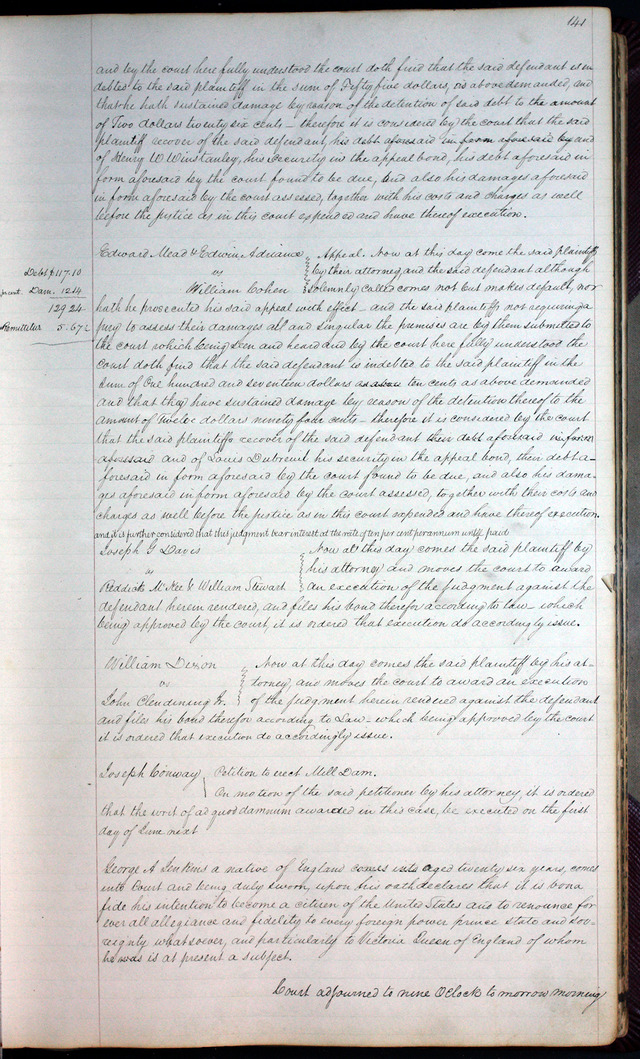 141
and by the court here fully understood the court doth find that the said defendant is in
debted to the said plaintiff in the sum of Fifty five dollars, as above demanded, and
that he hath sustained damage by reason of the detention of said debt to the amount
of Two dollars twenty six cents – therefore it is considered by the court that the said
plaintiff recover of the said defendant, his debt aforesaid in form aforesaid by and
of Henry W Winstanley, his security in the appeal bond, his debt aforesaid in
form aforesaid by the court found to be due, and also his damages aforesaid
in form aforesaid by the court assessed, together with his costs and charges as well
before the justice as in this court expended and have thereof execution.
Edward Mead & Edwin Adriance
vs
William Cohen
Appeal. Now at this day come the said plaintiffs
by their attorney, and the said defendant although
solemnly called comes not but makes default, nor
Debt $117.10
Dam. 12.14
129 24
Remittitur 5.67½
hath he prosecuted his said appeal with effect – and the said plaintiffs not requiring a
jury to assess their damages all and singular the premises are by them submitted to
the court which being seen and heard and by the court here fully understood the
court doth find that the said defendant is indebted to the said plaintiff in the
sum of One hundred and seventeen dollars as above ten cents as above demanded
and that they have sustained damage by reason of the detention thereof to the
amount of Twelve dollars ninety four cents – therefore it is considered by the court
that the said plaintiffs recover of the said defendant their debt aforesaid in form
aforesaid and of Louis Dubreuil his security in the appeal bond, their debt a-
foresaid in form aforesaid by the court found to be due, and also his dama-
ges aforesaid in form aforesaid by the court assessed, together with their costs and
charges as well before the justice as in this court expended and have thereof execution.
and it is further considered that this judgment bear interest at the rate of ten per cent per annum until paid
Joseph G Davis
vs
Reddick McKee & William Stewart
Now at this day comes the said plaintiff by
his attorney and moves the court to award
an execution of the judgment against the
defendant herein rendered, and files his bond therefor according to law – which
being approved by the court, it is ordered that execution do accordingly issue.
William Dixon
vs
John Clendining Jr.
Now at this day comes the said plaintiff by his at-
torney, and moves the court to award an execution
of the judgment herein rendered against the defendant
and files his bond therefor according to Law – which being approved by the court
it is ordered that execution do accordingly issue.
Joseph Conway
Petition to erect Mill Dam.
On motion of the said petitioner by his attorney, it is ordered
that the writ of ad quod damnum awarded in this case, be executed on the first
day of June next
George A Jenkins a native of England comes into aged twenty six years, comes
into Court and being duly sworn, upon his oath declares that it is bona
fide his intention to become a citizen of the United States and to renounce for
ever all allegiance and fidelity to every foreign power prince state and sov-
ereignty whatsoever, and particularly to Victoria Queen of England of whom
he was is at present a subject.
Court adjourned to nine OClock to morrow morning